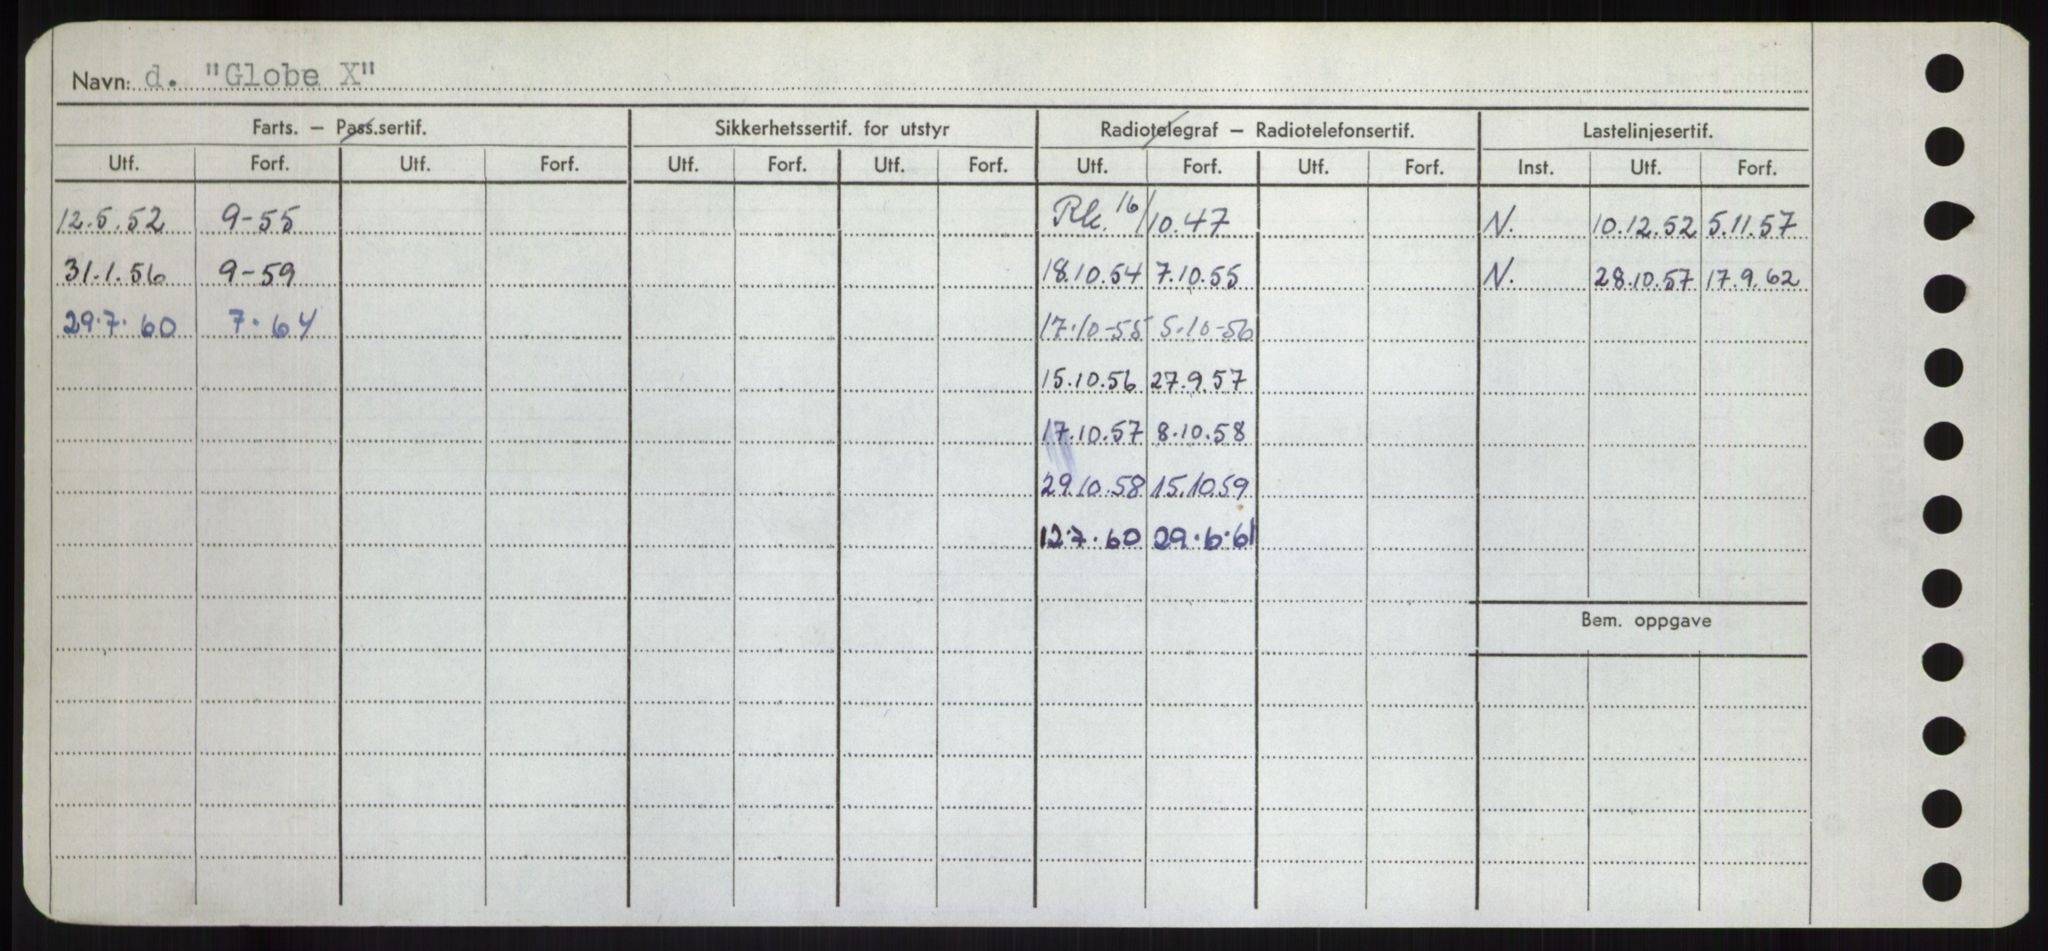 Navn: d. "Globe X"
Farts. — Pass.sertif. Sikkerhetssertif. for utstyr Radiotelegraf — Radiotelefonsertif. Lastelinjesertif.
Utf. Forf. Utf. Forf. Utf. Forf. Utf. Forf. Utf. Forf. Utf. Forf. Inst. Utf. Forf.
12.5.52 9-55 Rk. 16/10.47 N. 10.12.52 5.11.57
31.1.56 9-59 18.10.54 7.10.55 N. 28.10.57 17.9.62
29.7.60 7.64 17.10-55 5.10-56
15.10.56 27.9.57
17.10.57 8.10.58
29.10.58 15.10.59
12.7.60 29.6.61
Bem. oppgave